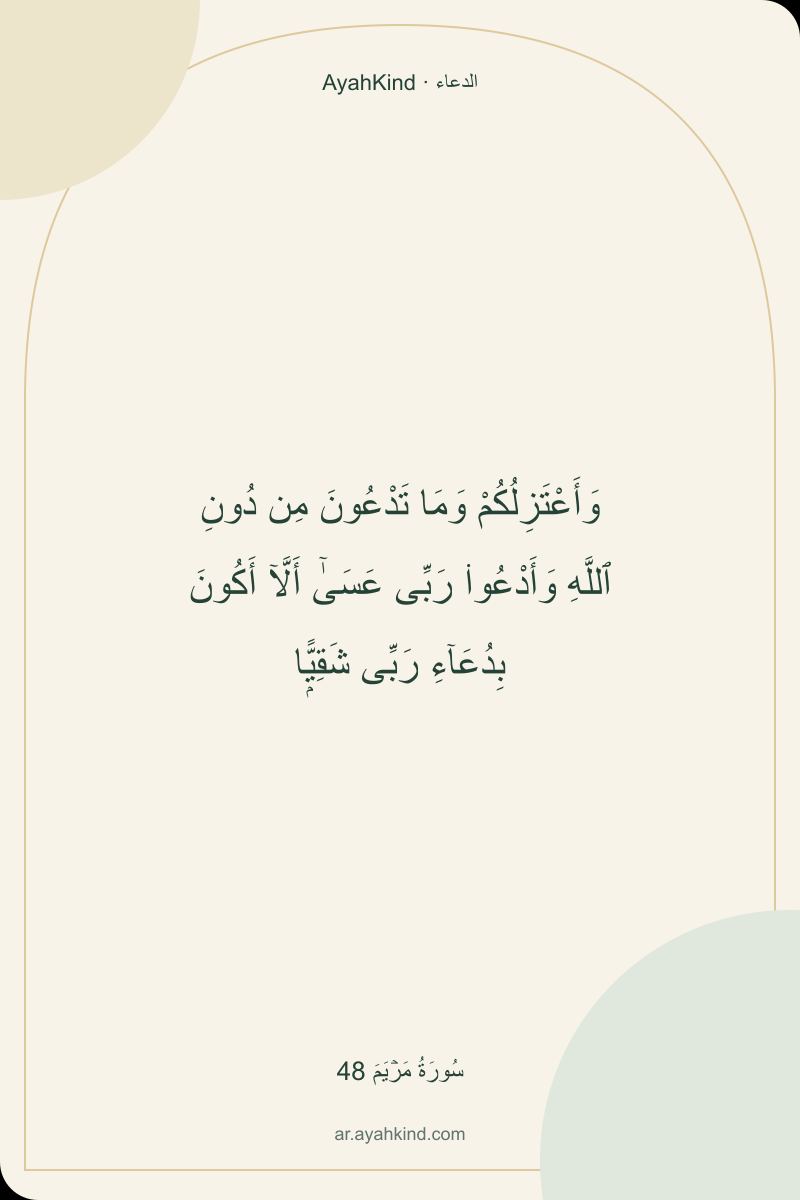 AyahKind · الدعاء
وَأَعْتَزِلُكُمْ وَمَا تَدْعُونَ مِن دُونِ
ٱللَّهِ وَأَدْعُوا۟ رَبِّى عَسَىٰٓ أَلَّآ أَكُونَ
بِدُعَآءِ رَبِّى شَقِيًّۭا
سُورَةُ مَرۡيَمَ 48
ar.ayahkind.com